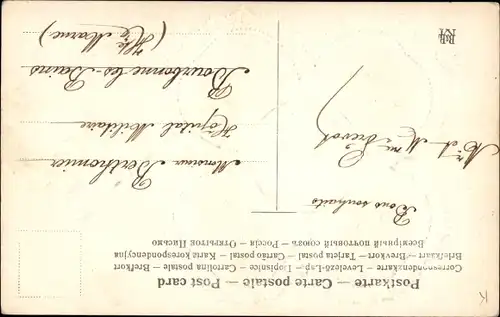 Postkarte — Carte postale — Post card
Correspondenzkarte — Levelező-Lap — Dopisnice — Cartolina postale — Brefkort
Briefkaart — Brevkort — Tarjeta postal — Cartão postal — Karta korespondencyjna
Всемірный почтовый союзъ — Россія — Открытое Письмо
Bons souhaits
Mr et Mme
Monsieur Berthomier
Hôpital Militaire
Bourbonne-les-Bains
(Hte Marne)
K